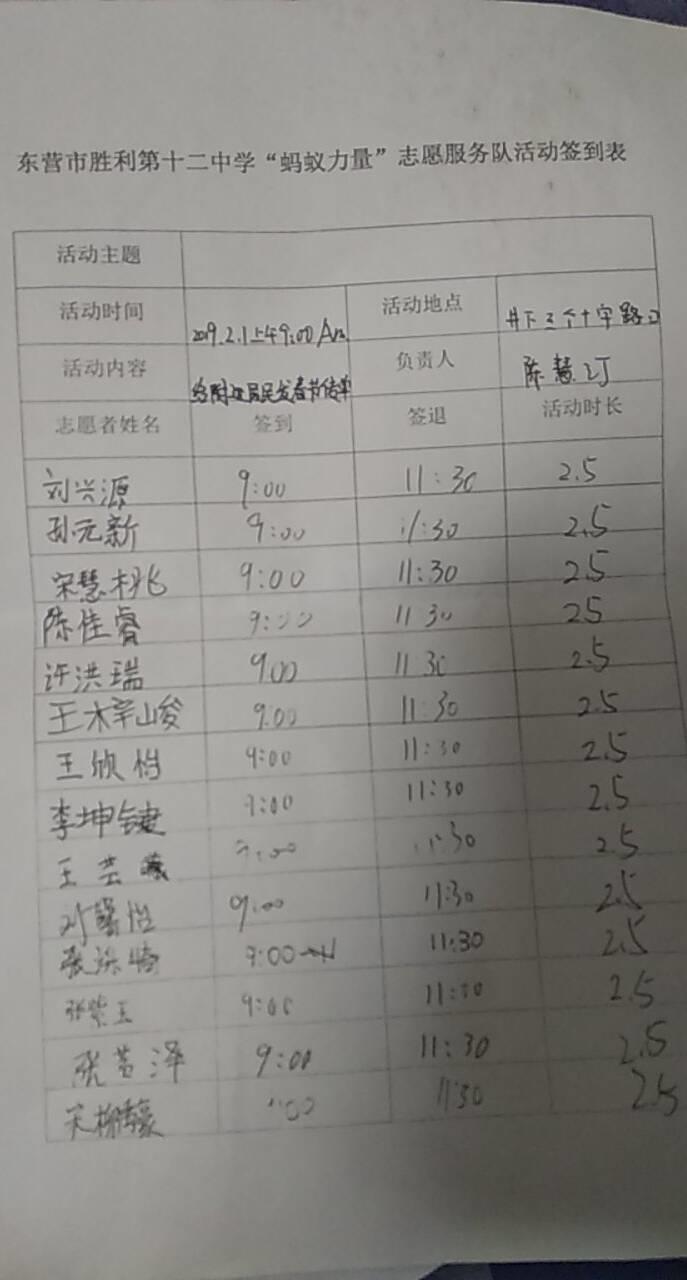 东营市胜利第十二中学“蚂蚁力量”志愿服务队活动签到表
活动主题
活动时间 2019.2.1上午9:00 Am 活动地点 井下三个十字路口
活动内容 给附近居民发春节传单 负责人 陈慧汀
志愿者姓名 签到 签退 活动时长
刘兴源 9:00 11:30 2.5
孙元新 9:00 11:30 2.5
宋慧桃 9:00 11:30 2.5
陈佳睿 9:00 11 30 25
许洪瑞 900 11 30 2.5
王梓峻 9:00 11:30 2.5
王欣怡 9:00 11:30 2.5
李坤键 9:00 11:30 2.5
王芸 9:00 11:30 2.5
刘馨怡 9:00 11:30 2.5
张 9:00 11:30 2.5
张紫玉 9:00 11:30 2.5
张芸泽 9:00 11:30 2.5
宋 :00 11:30 2.5